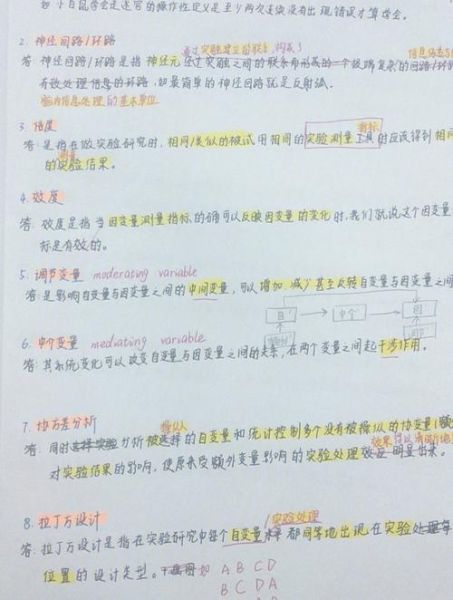 如小白鼠学会走迷宫的操作性定义是至少两次连续没有出现错误才算学会。
2. 神经回路/环路
通过突触建立的联系,构成了
答: 神经回路/环路是指神经元经过突触之间的联系而形成的一个极端复杂的回路/环路
有效处理信息的环路,如最简单的神经回路就是反射弧。
脑内信息处理的基本单位
3. 信度
指标
答: 是指在做实验研究时,相同/类似的被试用相同的实验测量工具时应该得到相同
的实验结果。
4. 效度
答: 效度是指当因变量测量指标的确可以反映因变量的变化时,我们就说这个因变量
标是有效的。
5. 调节变量 moderating variable
答: 是影响自变量与因变量之间的中间变量,可以增加、减少甚至反转自变量与因变量之间
自 中介 因
6. 中介变量 mediating variable
答: 其系统变化可以改变自变量与因变量之间的关系,在两个变量之间起干涉作用。
7. 协方差分析
操纵
答: 同时分析被选择的自变量和统计控制多个没有被操纵的协变量(额
对实验结果的影响,使原来受额外变量影响的实验处理效应明显出来。
8. 拉丁方设计
/实验处理
答: 拉丁方设计是指在实验研究中每个自变量都同等地出现在实验处理
位置的设计类型。 如 A B C D
B C D A